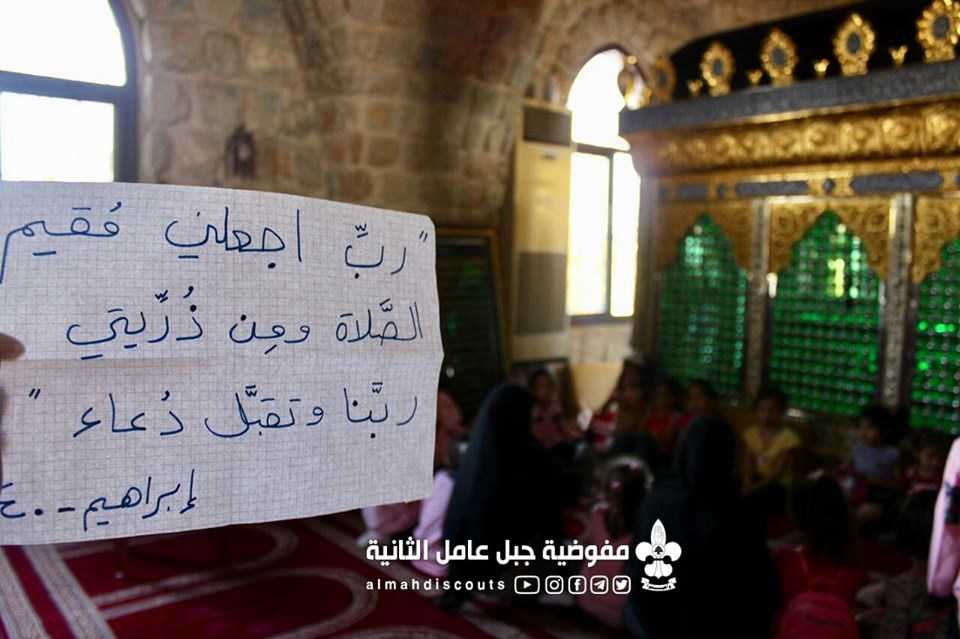 "ربِّ اجعلني مُقيم
الصَّلاة ومِن ذُرِّيتي
ربَّنا وتقبَّل دُعاء"
إبراهيم -٤٠
مفوضية جبل عامل الثانية
almahdiscouts